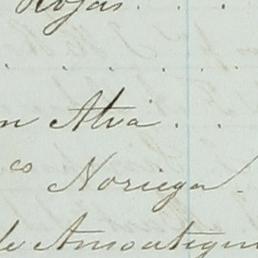 Rojas . .
. . . . .
n Alva . .
co Noriega .
de Amoategui